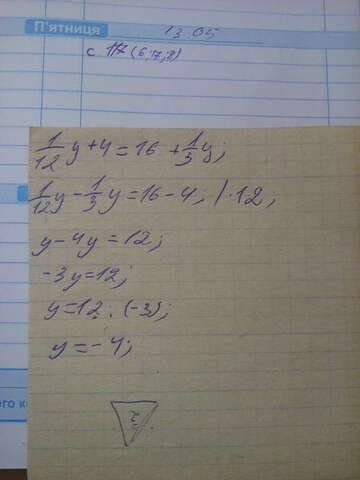 П'ятниця 13.05
с. 117 (6,7,8)
1/12 y + 4 = 16 + 1/3 y;
1/12 y - 1/3 y = 16 - 4; | · 12;
y - 4y = 12;
-3y = 12;
y = 12 : (-3);
y = -4;